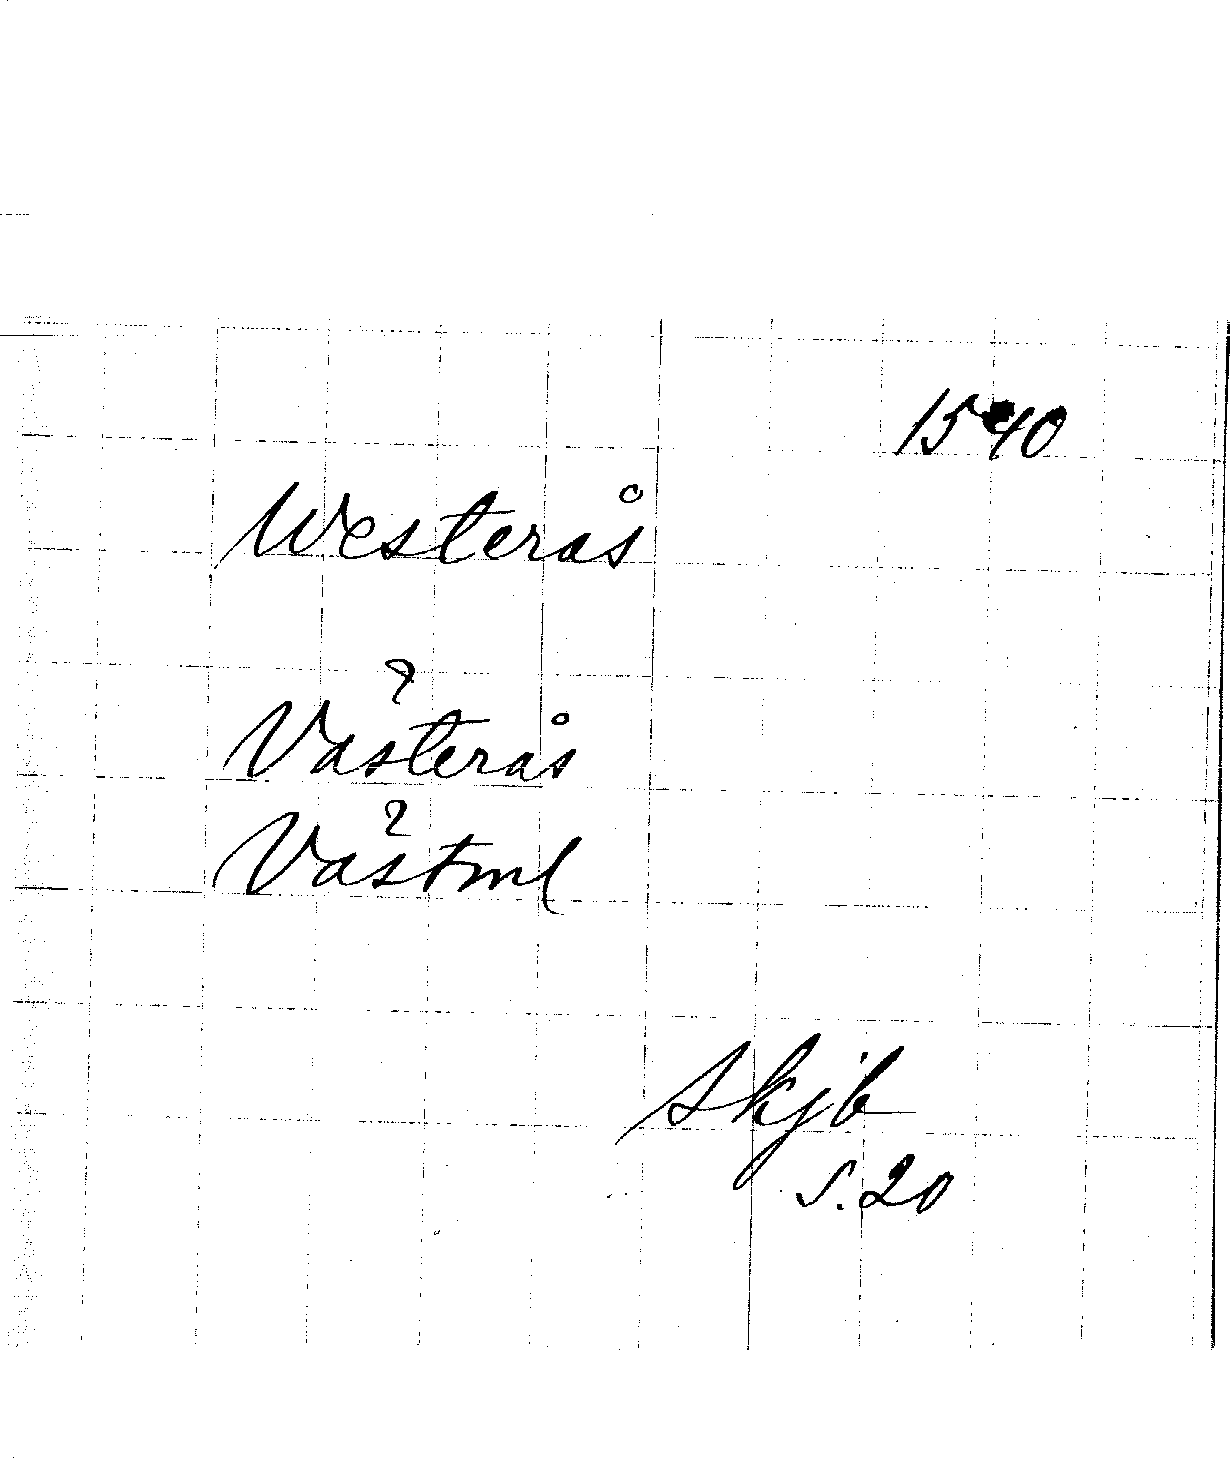 1540
Westerås
Västerås
Västml
skjb
s. 20